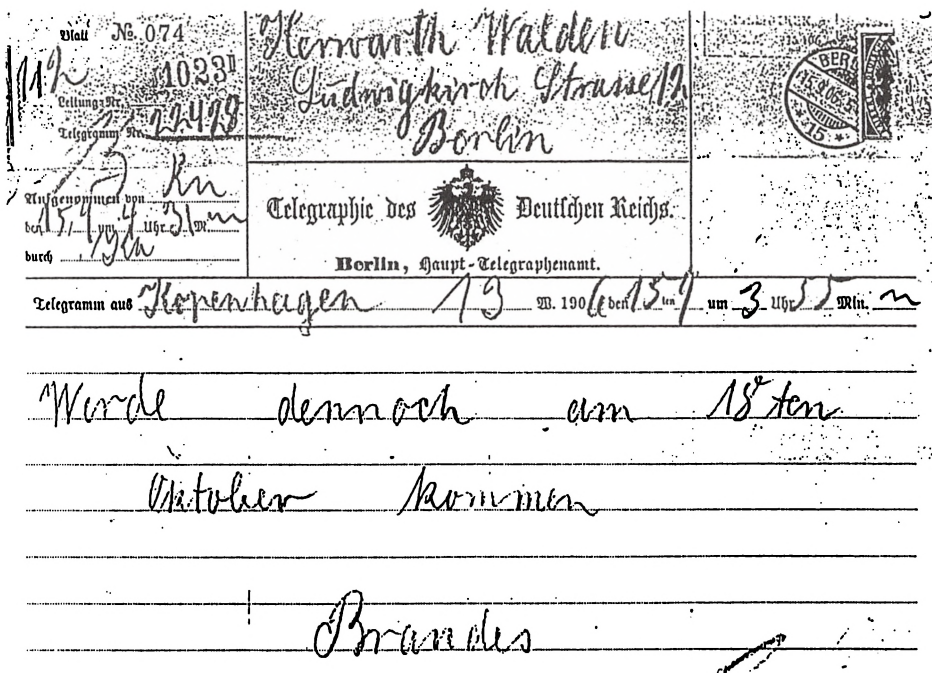 Blatt No. 074
1023II
Leitung-Nr.
Telegramm Nr. 22498
Aufgenommen von Kn
den 15/9 um 4 Uhr 31 M. n
durch
Herwarth Walden
Ludwigkirch Strasse 12
Berlin
BERLIN
15.9.06
* 15 *
Telegraphie des Deutschen Reichs.
Berlin, Haupt-Telegraphenamt.
Telegramm aus Kopenhagen 13 W. 1906 den 15ten 9 um 3 Uhr 55 Min. n
Werde dennoch am 18ten
Oktober kommen
Brandes